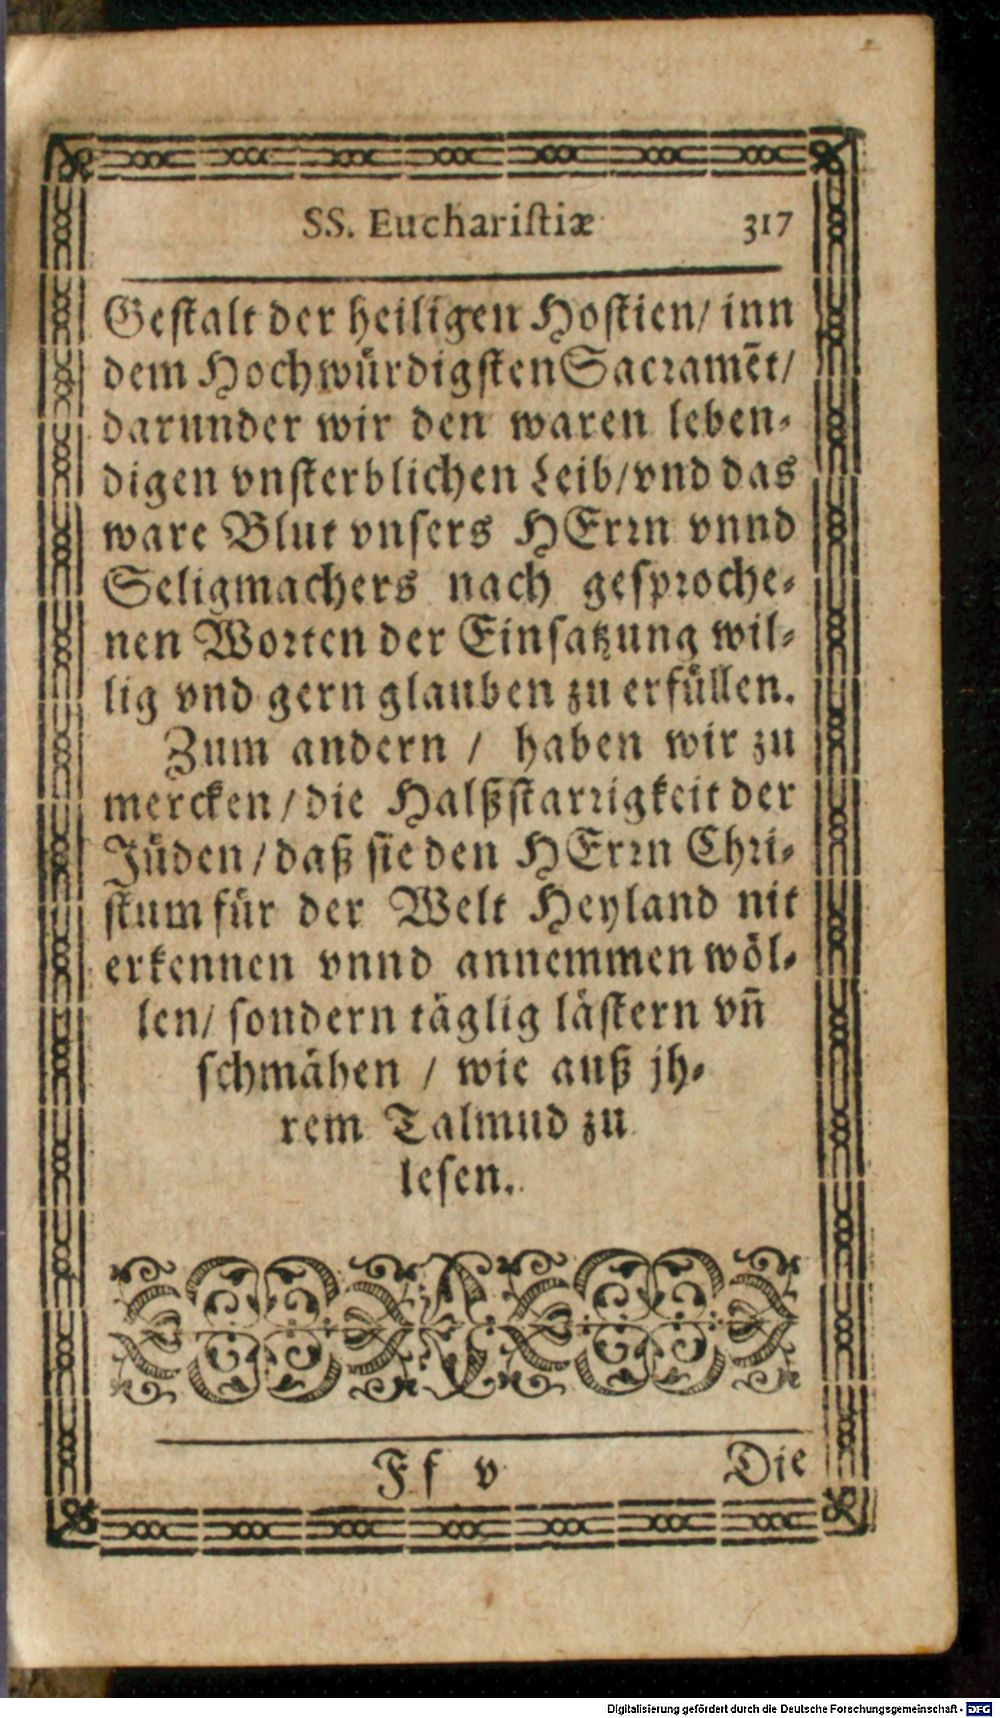 SS. Euchariſtiæ 317
Geſtalt der heiligen Hoſtien/ inn
dem Hochwürdigſten Sacramēt/
darunder wir den waren leben-
digen vnſterblichen Leib/vnd das
ware Blut vnſers HErꝛn vnnd
Seligmachers nach geſpꝛoche-
nen Woꝛten der Einſatzung wil-
lig vnd gern glauben zu erfüllen.
Zum andern / haben wir zu
mercken/die Halßſtarꝛigkeit der
Jüden/daß ſie den HErꝛn Chꝛi-
ſtum für der Welt Heyland nit
erkennen vnnd annemmen wöl-
len/ ſondern täglig läſtern vn̄
ſchmähen / wie auß jh-
rem Talmud zu
leſen.
Ff v Die
Digitalisierung gefördert durch die Deutsche Forschungsgemeinschaft - DFG